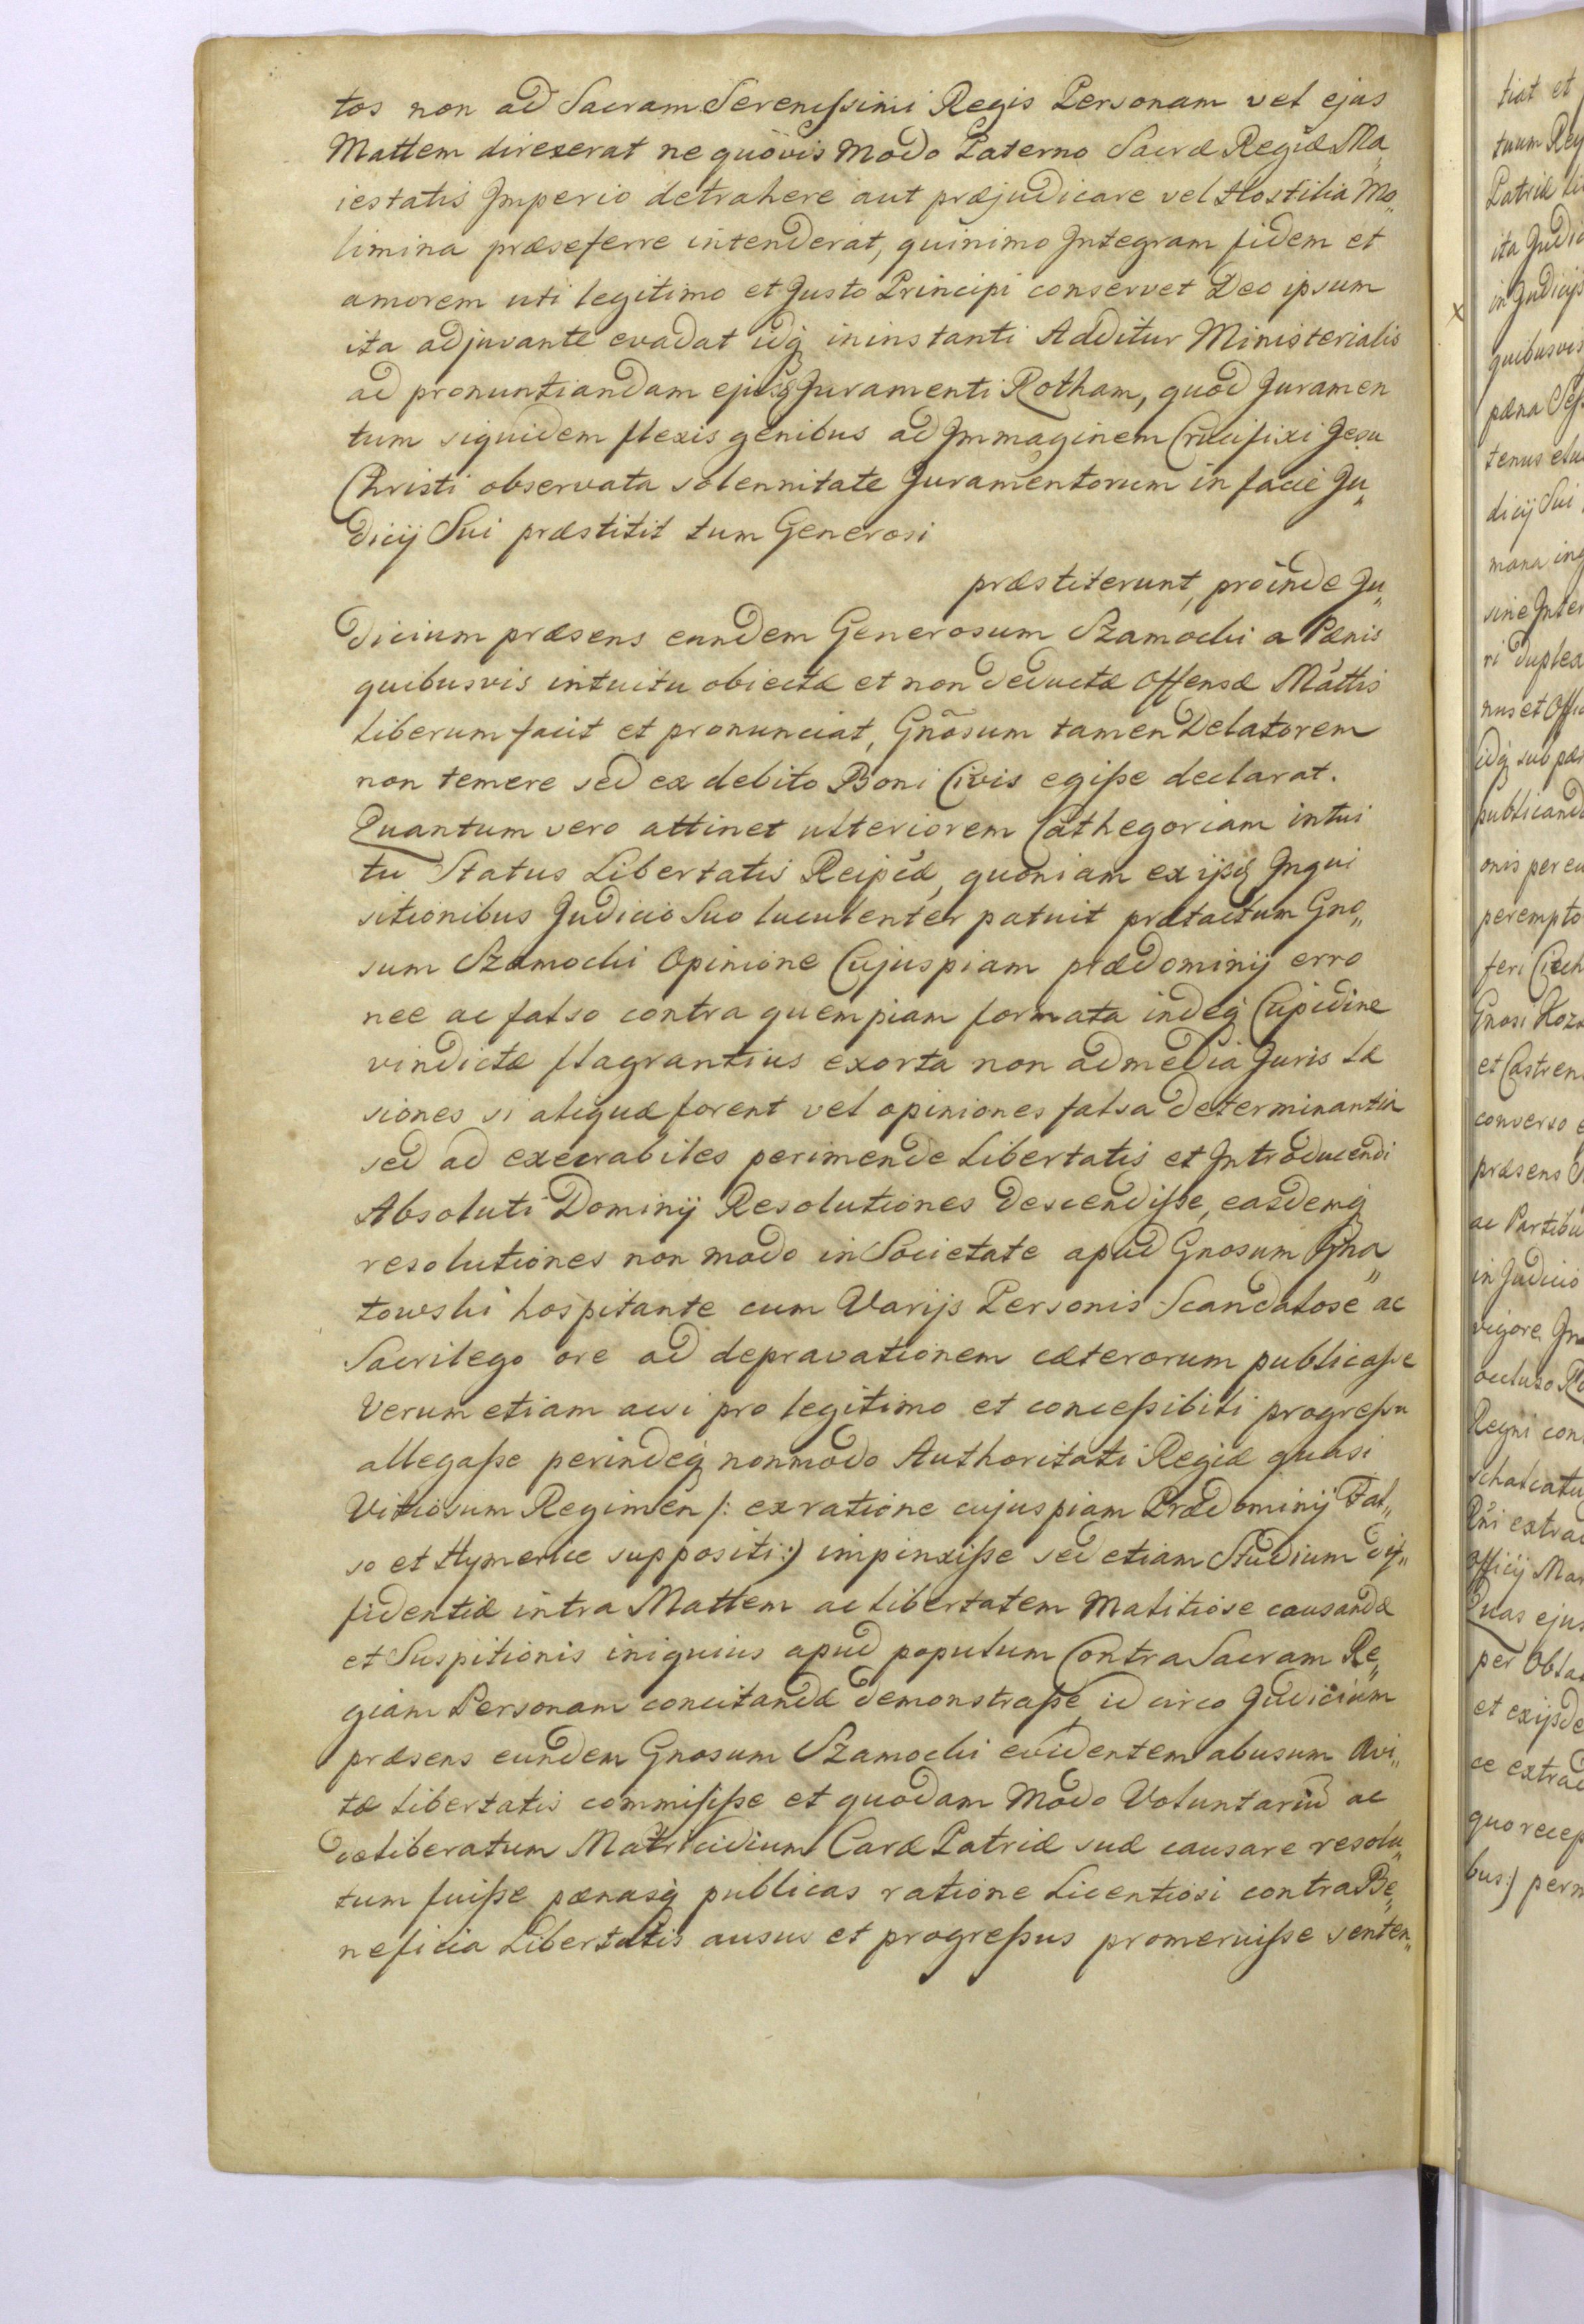 tos non ad Sacram Serenissimi Regis Personam vel ejus
Mattem direxerat ne quovis Modo Paterno Sacræ Regiæ Ma„
iestatis Imperio detrahere aut præjudicare vel Hostilia Mo„
limina præseferre intenderat, quinimo Integram fidem et
amorem uti legitimo et Justo Principi conservet Deo ipsum
ita adjuvante evadat idq₃ ininstanti Additur Ministerialis
ad pronuntiandam ejusq₃ Juramenti Rotham, quod Juramen
tum siquidem flexis genibus ad Immaginem Crucifixi Jesu
Christi observata solennitate Juramentorum in facie Ju„
dicij Sui præstitit tum Generosi
præstiterunt, proinde Ju„
dicium præsens eundem Generosum Szamocki a Pænis
quibusvis intuitu obiectæ et non deductæ Offensæ Mattis
liberum facit et pronunciat, Gnõsum tamen Delatorem
non temere sed ex debito Boni Civis egisse declarat.
Quantum vero attinet ulteriorem Cathegoriam intui
tu Status Libertatis Reipcæ, quoniam ex ijsq₃ Inqui
sitionibus Judicio Suo luculenter patuit prætactum Gno„
sum Szamocki Opinione Cujuspiam prædominij erro
nee ac falso contra quempiam formata indeq₃ Cupidine
vindictæ flagrantius exorta non ad media Juris læ
siones si aliquæ forent vel opiniones falsa determinantia
sed ad execrabiles perimende Libertatis et Introducendi
Absoluti Dominij Resolutiones descendisse, easdemq₃
resolutiones non modo in Societate apud Gnosum Gna„
towski hospitante cum Varijs Personis Scandalose ac
Sacrilego ore ad depravationem cæterorum publicasse
Verum etiam acsi pro legitimo et concessibili progressu
allegasse perindeq₃ nonmodo Authoritati Regiæ quasi
Vitiosum Regimen /: ex ratione cujuspiam Prædominij Fal„
so et Hymerice suppositi :) impinxisse sed etiam Studium dif„
fidentiæ intra Mattem ac libertatem Malitiose causandæ
et Suspitionis iniquius apud populum Contra Sacram Re„
giam Personam concitandæ demonstrasse, id circo Judicium
præsens eundem Gnosum Szamocki evidentem abusum Avi„
tæ libertatis commisisse et quodam Modo Voluntariũ ac
deliberatum Matricidium Caræ Patriæ suæ causare resolu„
tum fuisse pænasq₃ publicas ratione Licentiosi contra Be„
neficia Libertatis ausus et progressus promeruisse senten„